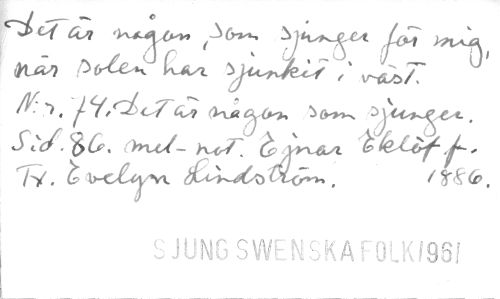 Det är någon, som sjunger för mig,
när solen har sjunkit i väst.
N:r. 74. Det är någon som sjunger.
Sid. 86. mel-not. Ejnar Eklöf f.
Tx. Evelyn Lindström. 1886.
SJUNG SWENSKA FOLK/961